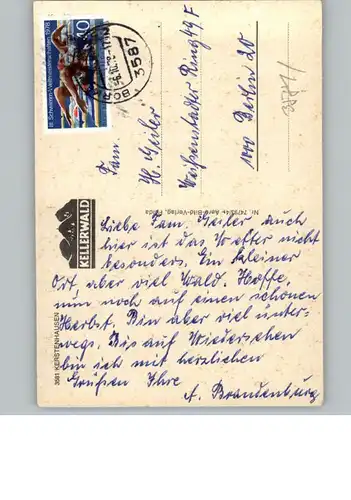 III. Schwimm-Weltmeisterschaften 1978
40
3587
Fam.
H. Geiler
Weißenstadter Ring 49 F
1000 Berlin 20
KELLERWALD
3581 KERSTENHAUSEN
Aero-Bild-Verlag, Fulda
Liebe Fam. Geiler auch
hier ist das Wetter nicht
besonders. Ein kleiner
Ort, aber viel Wald. Hoffe,
nun noch auf einen schönen
Herbst. Bin aber viel unter-
wegs. Bis auf Wiedersehen
bin ich mit herzlichen
Grüßen Ihre
A. Brandenburg